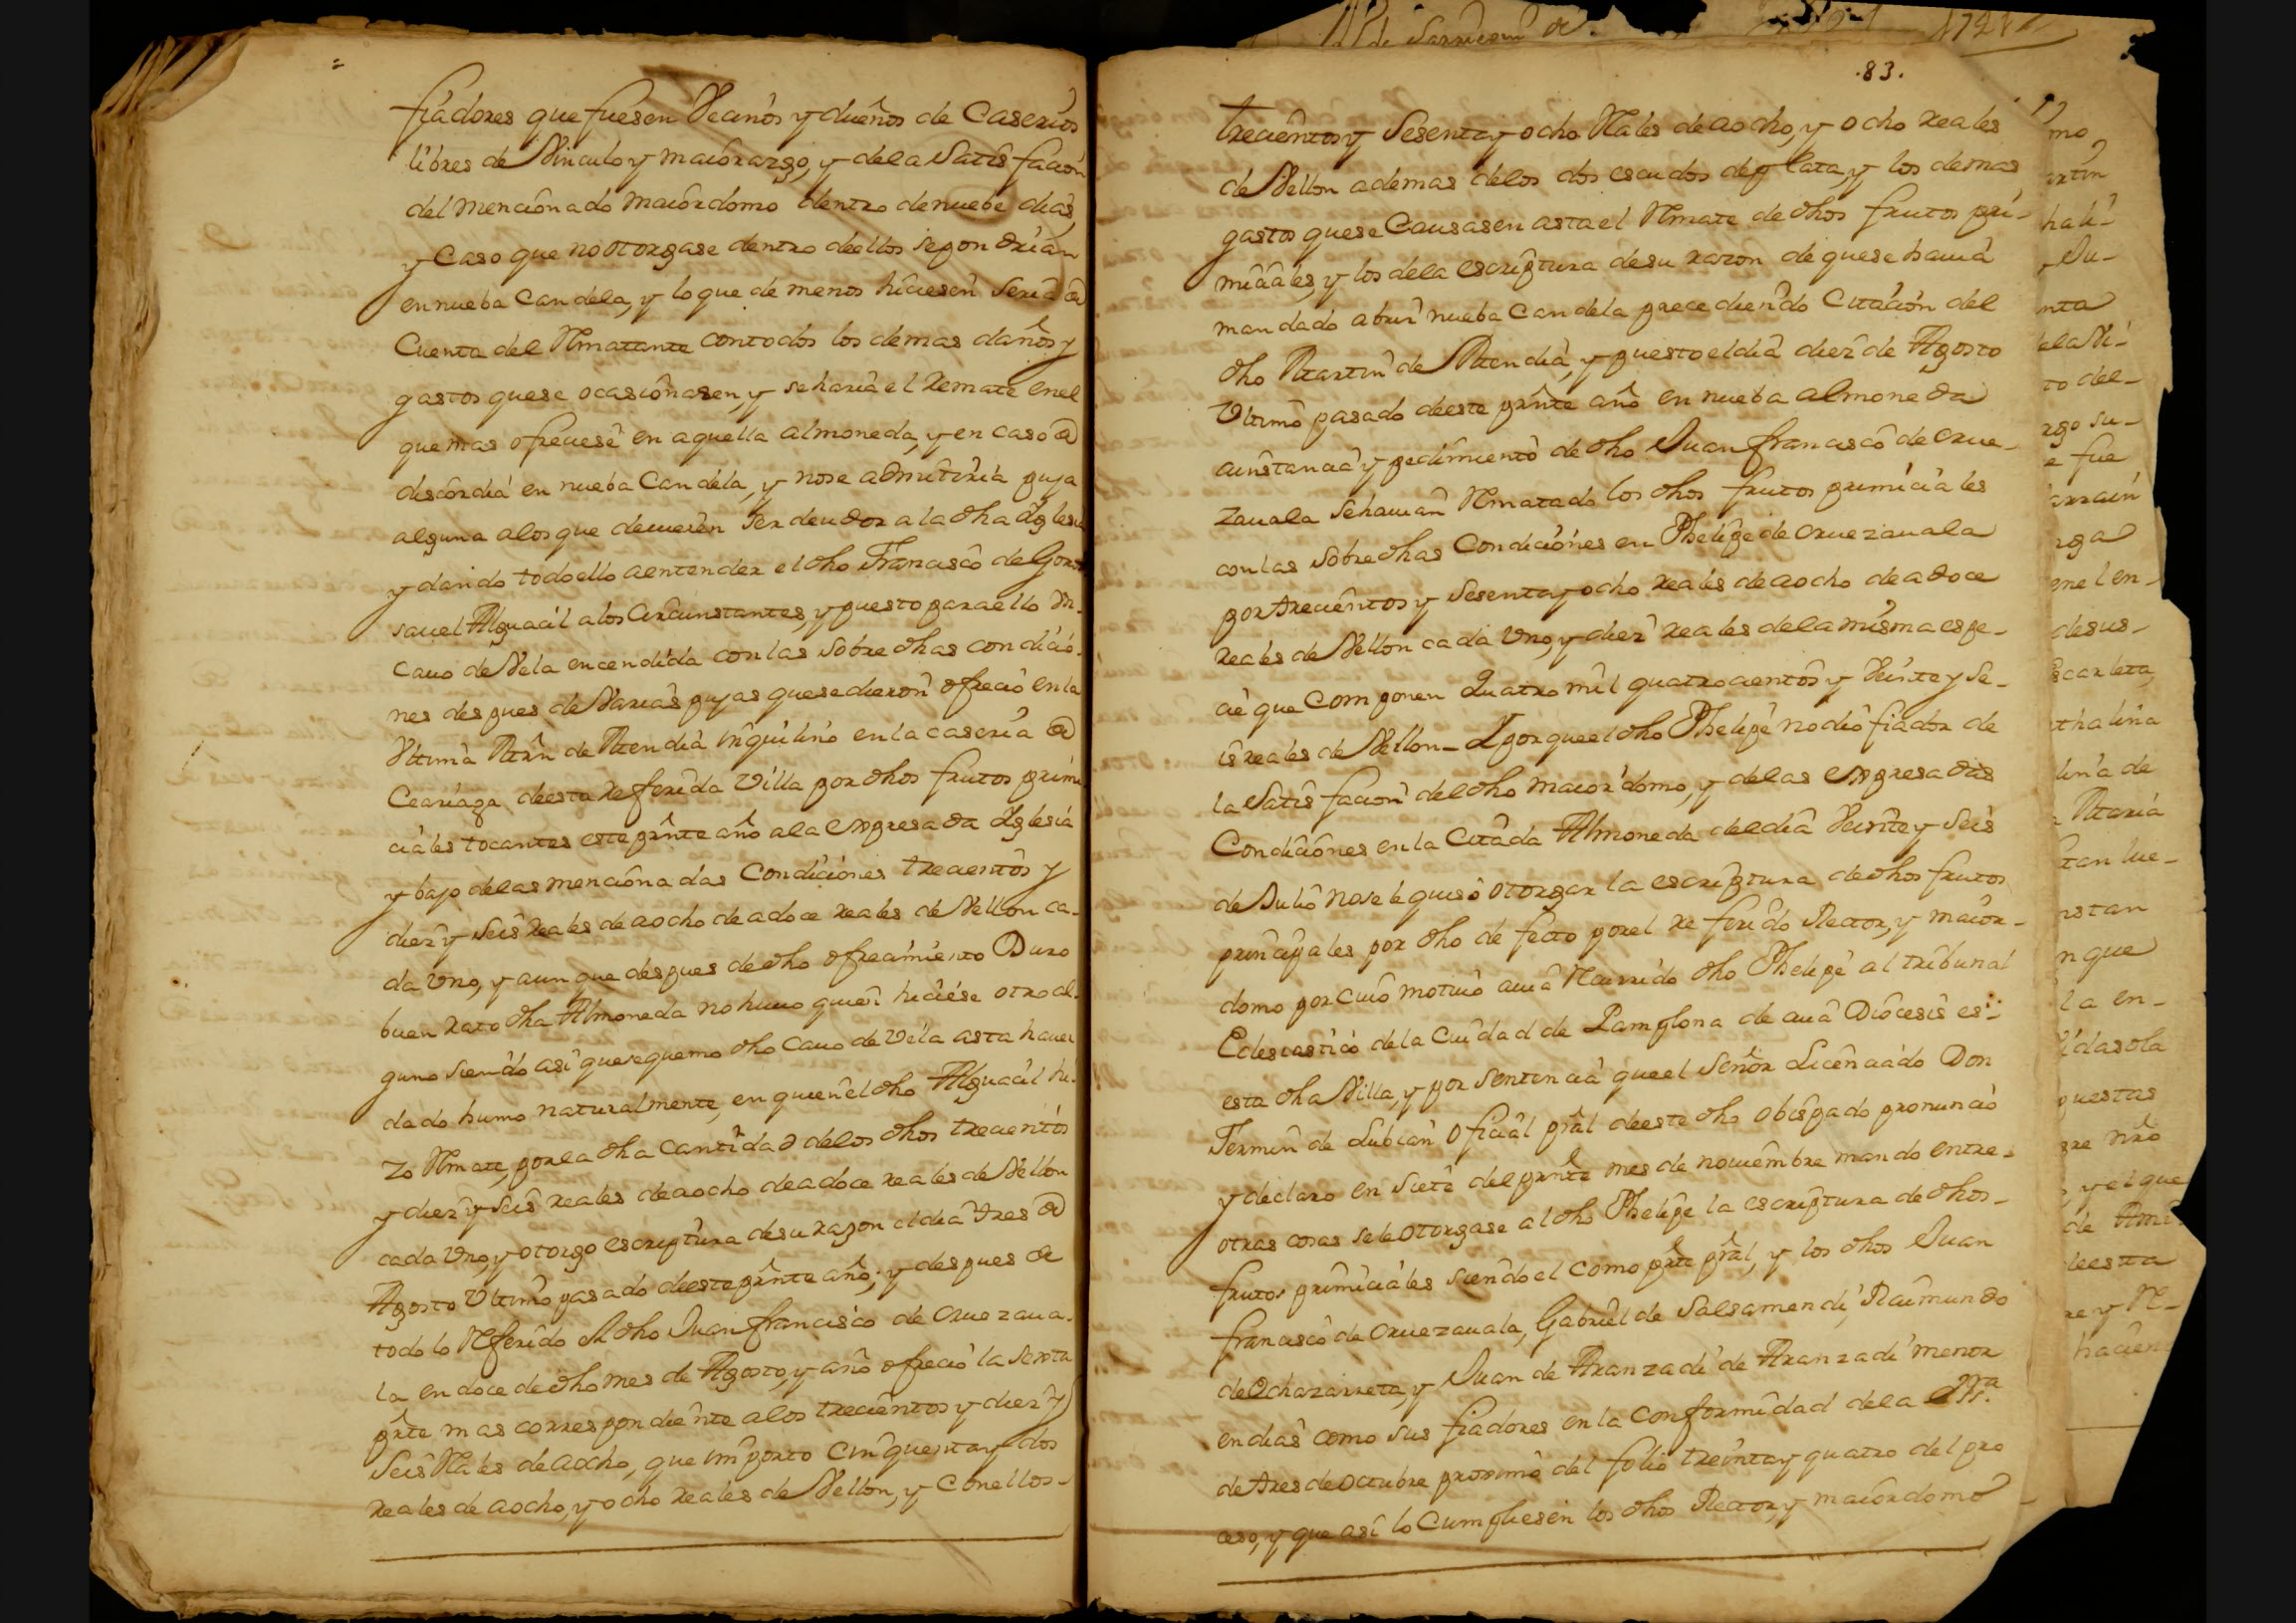 fiadores que fuesen Vecinos y dueños de Caserios
libres de Vinculo y maiorazgo, y dela Satisfacion
del mencionado maiordomo dentro de nuebe dias,
y Caso que no otorgase dentro de ellos se pondrian
en nueba Candela, y lo que de menos hiciesen seria de
Cuenta del Rmatante con todos los demas daños y
gastos que se ocasionasen, y se haria el Remate en el
que mas ofreciese en aquella almoneda, y en caso de
discordia en nueba Candela, y no se admitiria puja
alguna alos que deuieren ser deudor a la dha Iglesia
y dando todo ello a entender el dho Francisco de
sauel Alguacil a los Circunstantes, y puesto para ello un
cauo de Vela encendida con las sobre dhas condicio-
nes despues de Varias pujas que se dieron ofrecio en la
Vltima Mrn de Mendia inquilino en la caseria de
Ceariaga de esta Referida Villa por dhos frutos primi
ciales tocantes este prnte año a la expresada Iglesia
y bajo de las mencionadas Condiciones trecientos y
diez y seis Reales de a ocho de a doce reales de Vellon ca-
da Uno, y aunque despues de dho ofrecimiento Duro
buen rato dha Almoneda no huuo quien hiciese otro al-
guno siendo asi que se quemo dho Cauo de Vela asta hauer
dado humo naturalmente, en quien el dho Alguacil hi-
zo Rmate, por la dha Cantidad de los dhos trecientos
y diez y seis reales de a ocho de a doce reales de Vellon
cada Uno, y otorgo escriptura de su razon el dia tres de
Agosto Vltimo pasado de este prnte año; y despues de
todo lo Referido el dho Juan francisco de Oruezaua-
la en doce de dho mes de Agosto, y año ofrecio la sexta
prte mas correspondiente a los trecientos y diez y
Seis Rales de a ocho, que importo Cinquenta y dos
reales de a ocho, y ocho reales de Vellon, y Con ellos-
.83.
trecientos y Sesenta y ocho Rales de a ocho, y ocho reales
de Vellon ademas de los dos escudos de plata, y los demas
gastos que se Causasen asta el Rmate de dhos frutos pri-
miciales, y los de la escriptura de su razon de que se hauia
mandado abrir nueba Candela precediendo Citacion del
dho Martin de Mendia, y puesto el dia diez de Agosto
Vltimo pasado de este prnte año en nueba almoneda
a instancia y pedimiento de dho Juan francisco de Orue-
zauala se hauian Rmatado los dhos frutos primiciales
con las sobre dhas Condiciones en Phelipe de Oruezauala
por trecientos y Sesenta y ocho reales de a ocho de a doce
reales de Vellon cada Uno, y diez reales de la misma espe-
cie que Componen quatro mil quatrocientos y Veinte y se-
is reales de Vellon - Y por que el dho Phelipe no dio fiador de
la Satisfacion del dho maiordomo, y de las expresadas
Condiciones en la Citada Almoneda del dia Veinte y Seis
de Julio no se le quiso otorgar la escriptura de dhos frutos
principales por dho defecto por el referido Rector, y maior-
domo por cuio motiuo auia Rcurrido dho Phelipe al tribunal
Eclesiastico de la Ciudad de Pamplona de cuia Diocesis es
esta dha Villa, y por Sentencia que el Señor Licenciado Don
Fermin de Lubian Oficial prãl de este dho obispado pronuncio
y declaro en siete del prnte mes de nouiembre mando entre
otras cosas se le otorgase al dho Phelipe la escriptura de dhos-
frutos primiciales siendo el como prte prãl, y los dhos Juan
francisco de Oruezauala, Gabriel de Salsamendi, Raimundo
de Ochazarreta, y Juan de Aranzadi de Aranzadi menor
en dias como sus fiadores en la conformidad de la
de tres de Octubre proximo del folio treinta y quatro del pro
ceso, y que asi lo Cumpliesen los dhos Rector, y maiordomo